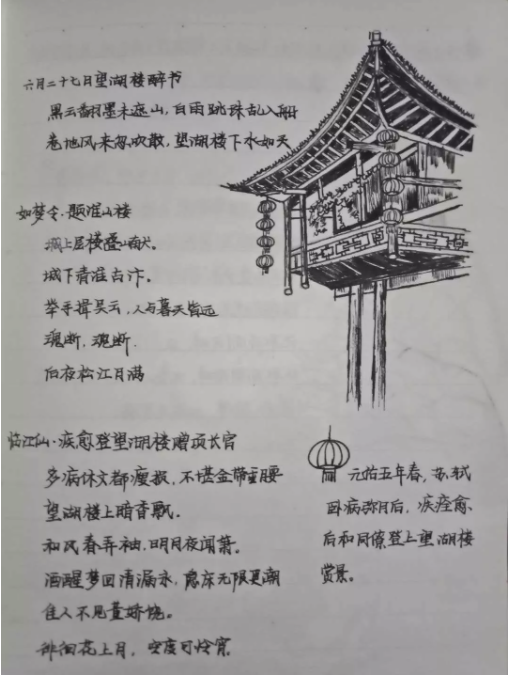 六月二十七日望湖楼醉书
黑云翻墨未遮山，白雨跳珠乱入船
卷地风来忽吹散，望湖楼下水如天
如梦令·题淮山楼
城上层楼叠巘。
城下清淮古汴。
举手揖吴云，人与暮天俱远
魂断，魂断.
后夜松江月满
临江仙·疾愈登望湖楼赠项长官
多病休文都瘦损，不堪金带垂腰
望湖楼上暗香飘。
和风春弄袖，明月夜闻箫。
酒醒梦回清漏永，隐床无限更潮
佳人不见董娇饶。
徘徊花上月，空度可怜宵
元祐五年春，苏轼
卧病弥月后，疾痊愈、
后和同僚登上望湖楼
赏景。